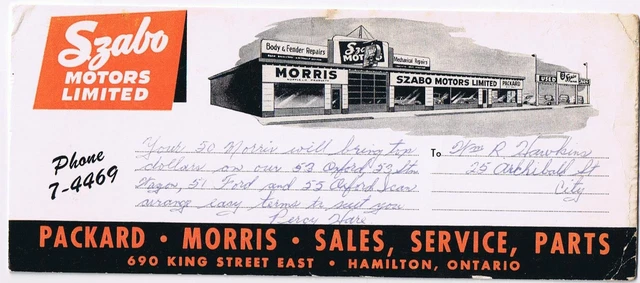 Szabo
MOTORS
LIMITED
Phone
7-4469
Body & Fender Repairs
Mechanical Repairs
MORRIS
SZABO MOTORS LIMITED
PACKARD
USED
Your 50 Morris will bring top
dollars on our 53 Oxford, 52 Stn
Wagon, 51 Ford and 55 Oxford, can
arrange easy terms to suit you
Percy Hare
To Wm R Hawkins
25 Archibald St
City
PACKARD • MORRIS • SALES, SERVICE, PARTS
690 KING STREET EAST • HAMILTON, ONTARIO